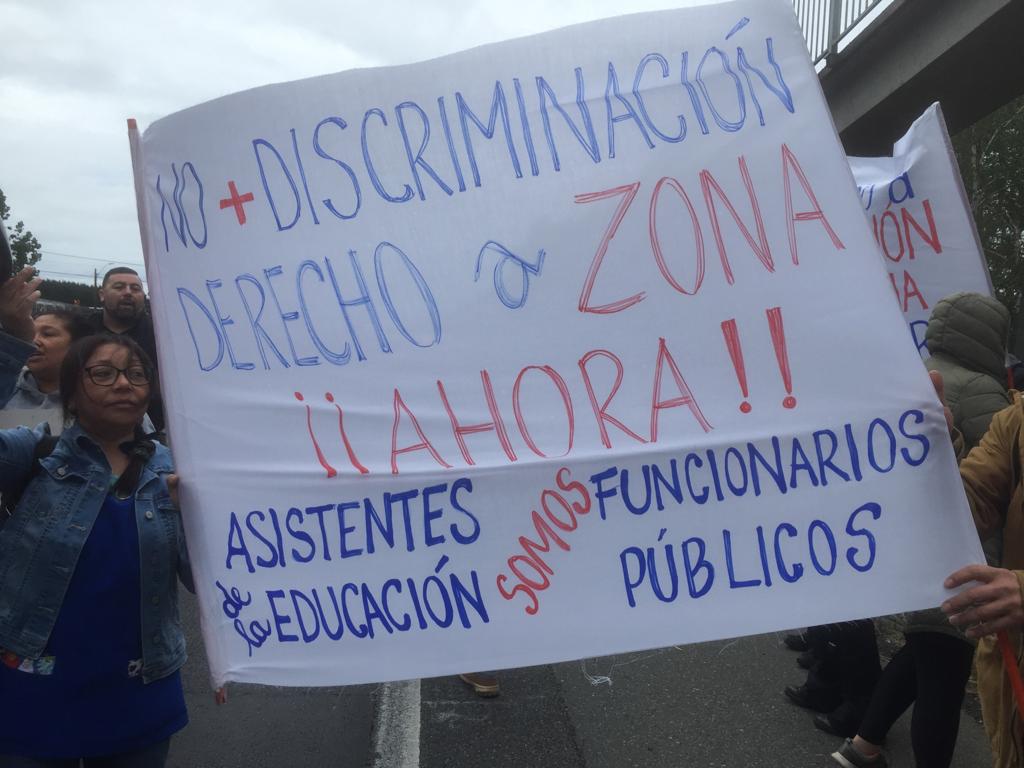 NO + DISCRIMINACIÓN
DERECHO a ZONA
¡¡AHORA!!
ASISTENTES
de la EDUCACIÓN
SOMOS
FUNCIONARIOS
PÚBLICOS
a
IÓN